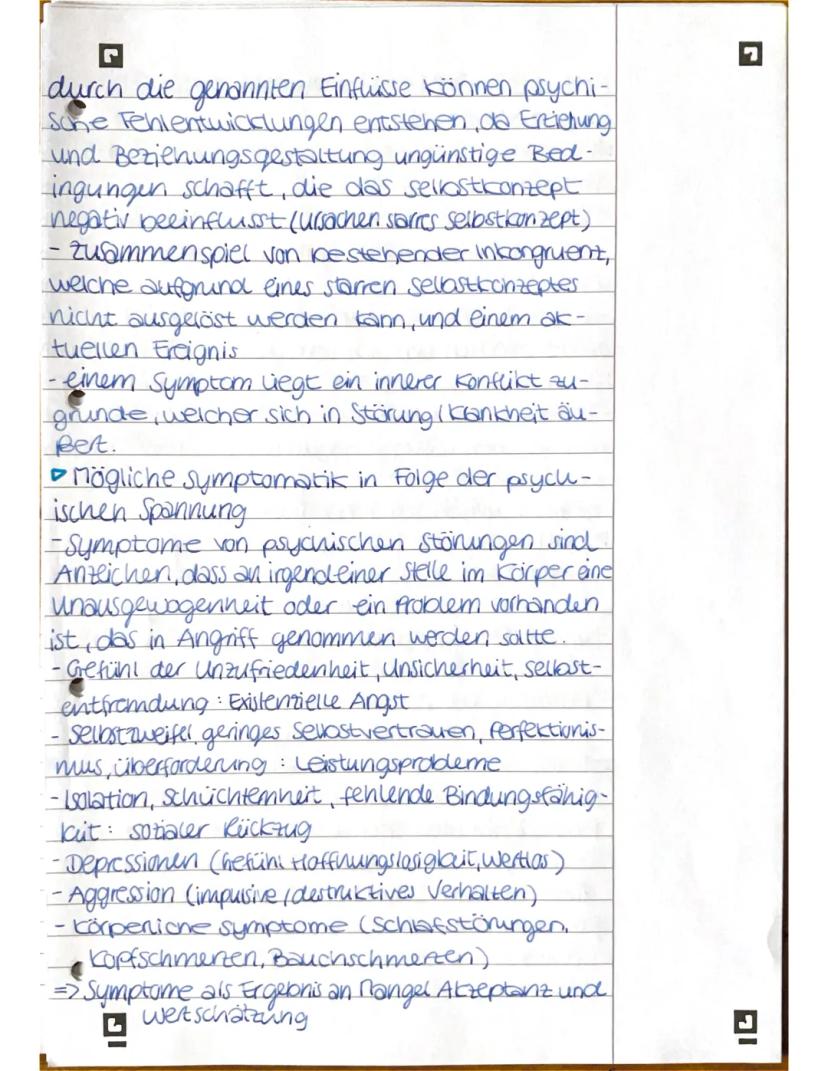 durch die genannten Einflüsse können psychi-
sche Fehlentwicklungen entstehen, da Erziehung
und Beziehungsgestaltung ungünstige Bed-
ingungen schafft, die das Selbstkonzept
negativ beeinflusst (Ursachen starres Selbstkonzept)
- Zusammenspiel von bestehender Inkongruenz,
welche aufgrund eines starren Selbstkonzeptes
nicht ausgelöst werden kann, und einem ak-
tuellen Ereignis
- einem Symptom liegt ein innerer Konflikt zu-
grunde, welcher sich in Störung / Krankheit äu-
ßert.
▷ Mögliche Symptomatik in Folge der psych-
ischen Spannung
- Symptome von psychischen Störungen sind
Anzeichen, dass an irgendeiner Stelle im Körper eine
Unausgewogenheit oder ein Problem vorhanden
ist, das in Angriff genommen werden sollte.
- Gefühl der Unzufriedenheit, Unsicherheit, Selbst-
entfremdung : Existenzielle Angst
- Selbstzweifel, geringes Selbstvertrauen, Perfektionis-
mus, Überforderung : Leistungsprobleme
- Isolation, Schüchternheit, fehlende Bindungsfähig-
keit : sozialer Rückzug
- Depressionen (Gefühl Hoffnungslosigkeit, Wertlos)
- Aggression (impulsive / destruktives Verhalten)
- Körperliche Symptome (Schlafstörungen,
Kopfschmerzen, Bauchschmerzen)
=> Symptome als Ergebnis an Mangel Akzeptanz und
Wertschätzung